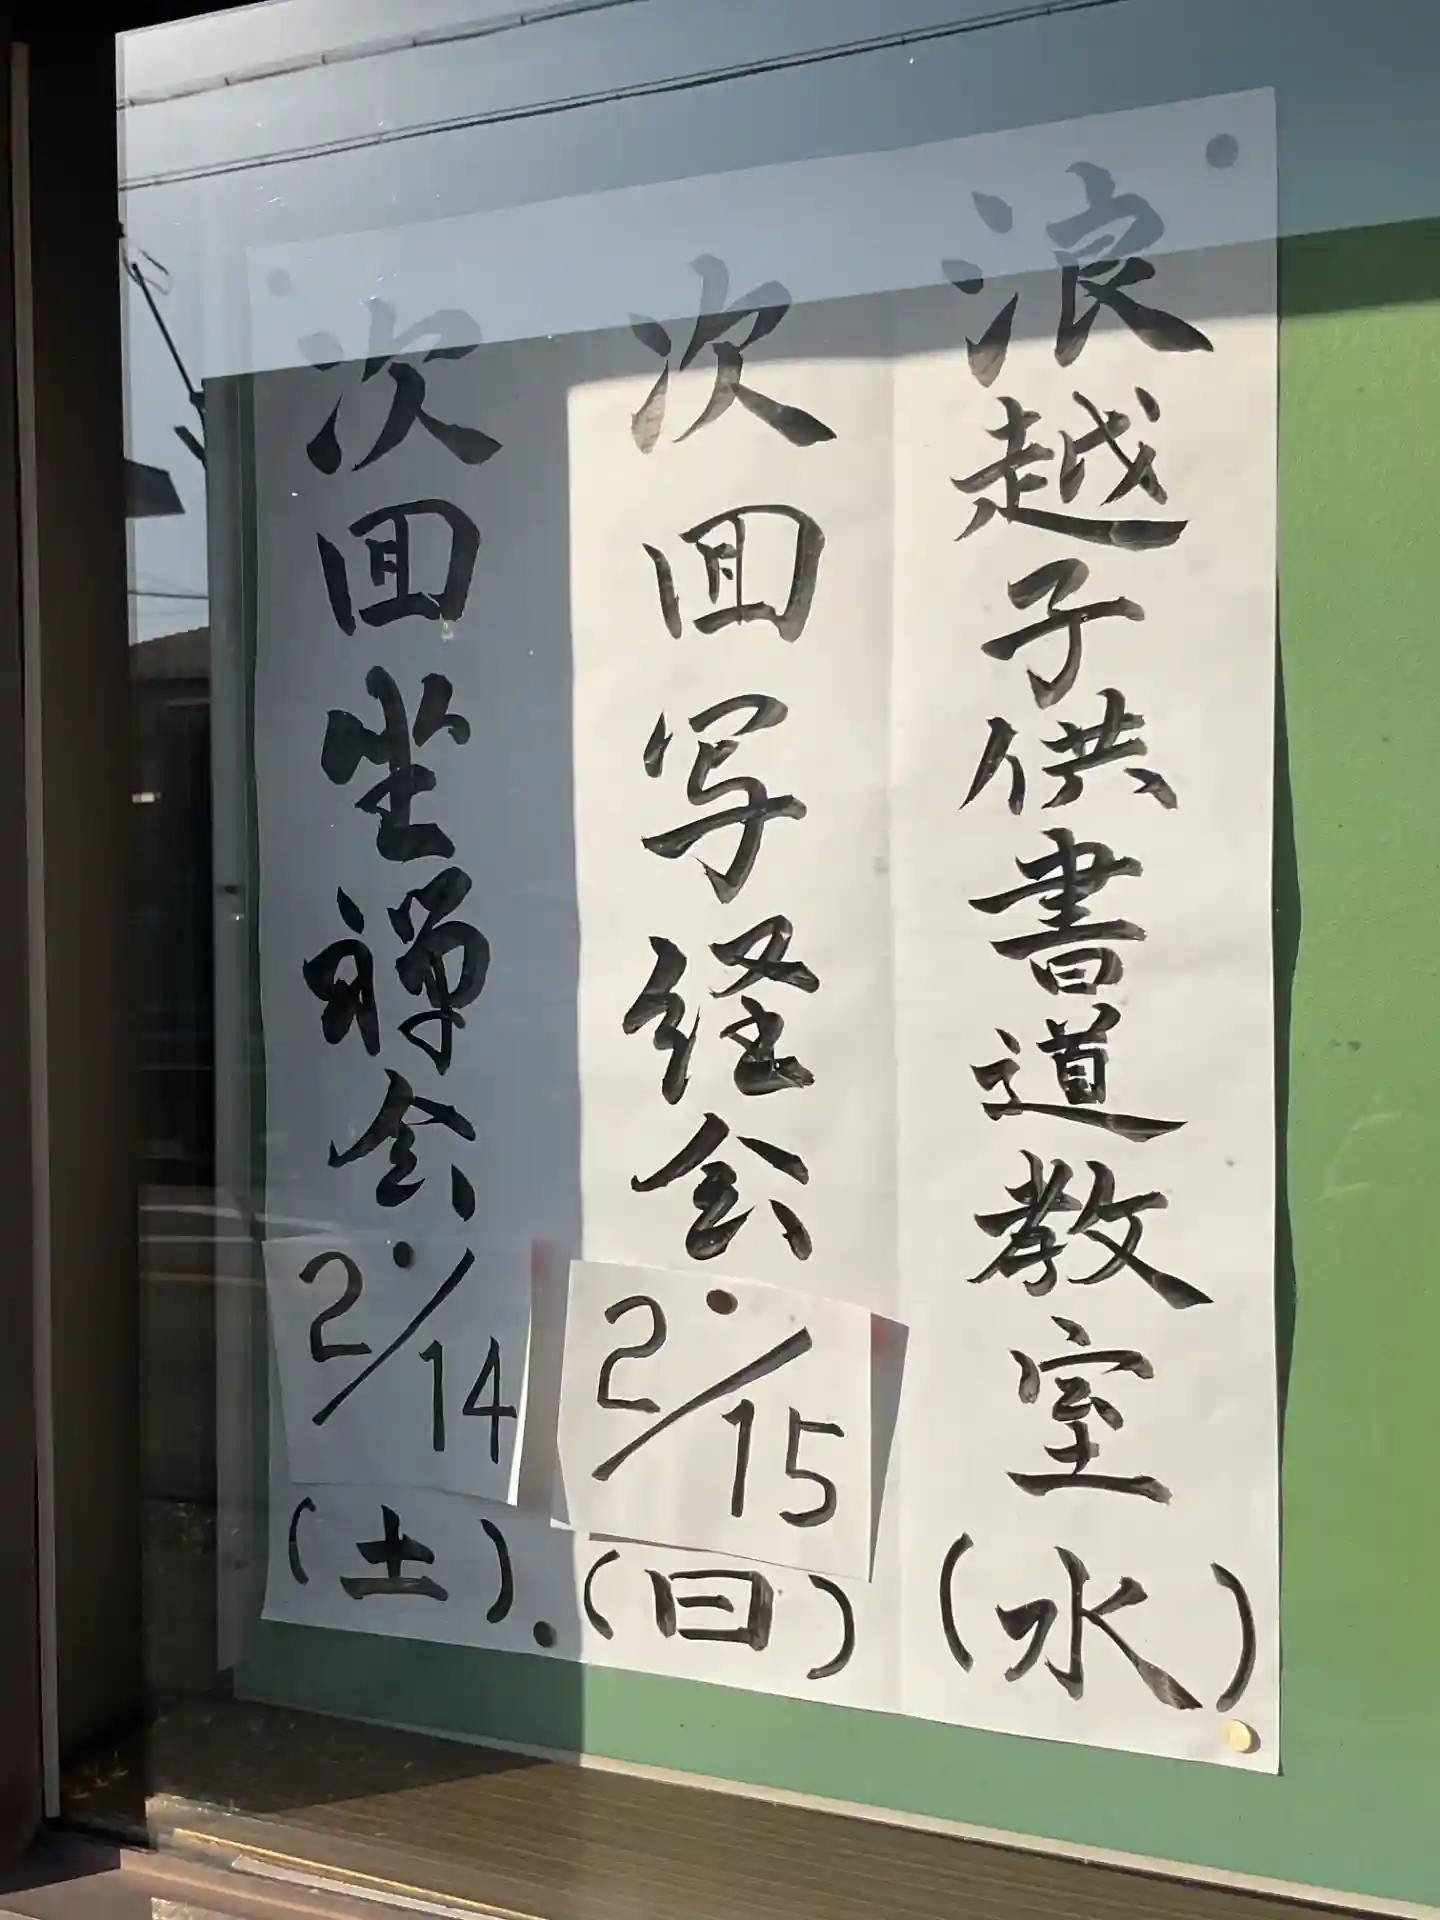 浪越子供書道教室(水)
次回写経会2/15(日)
次回坐禅会2/14(土)